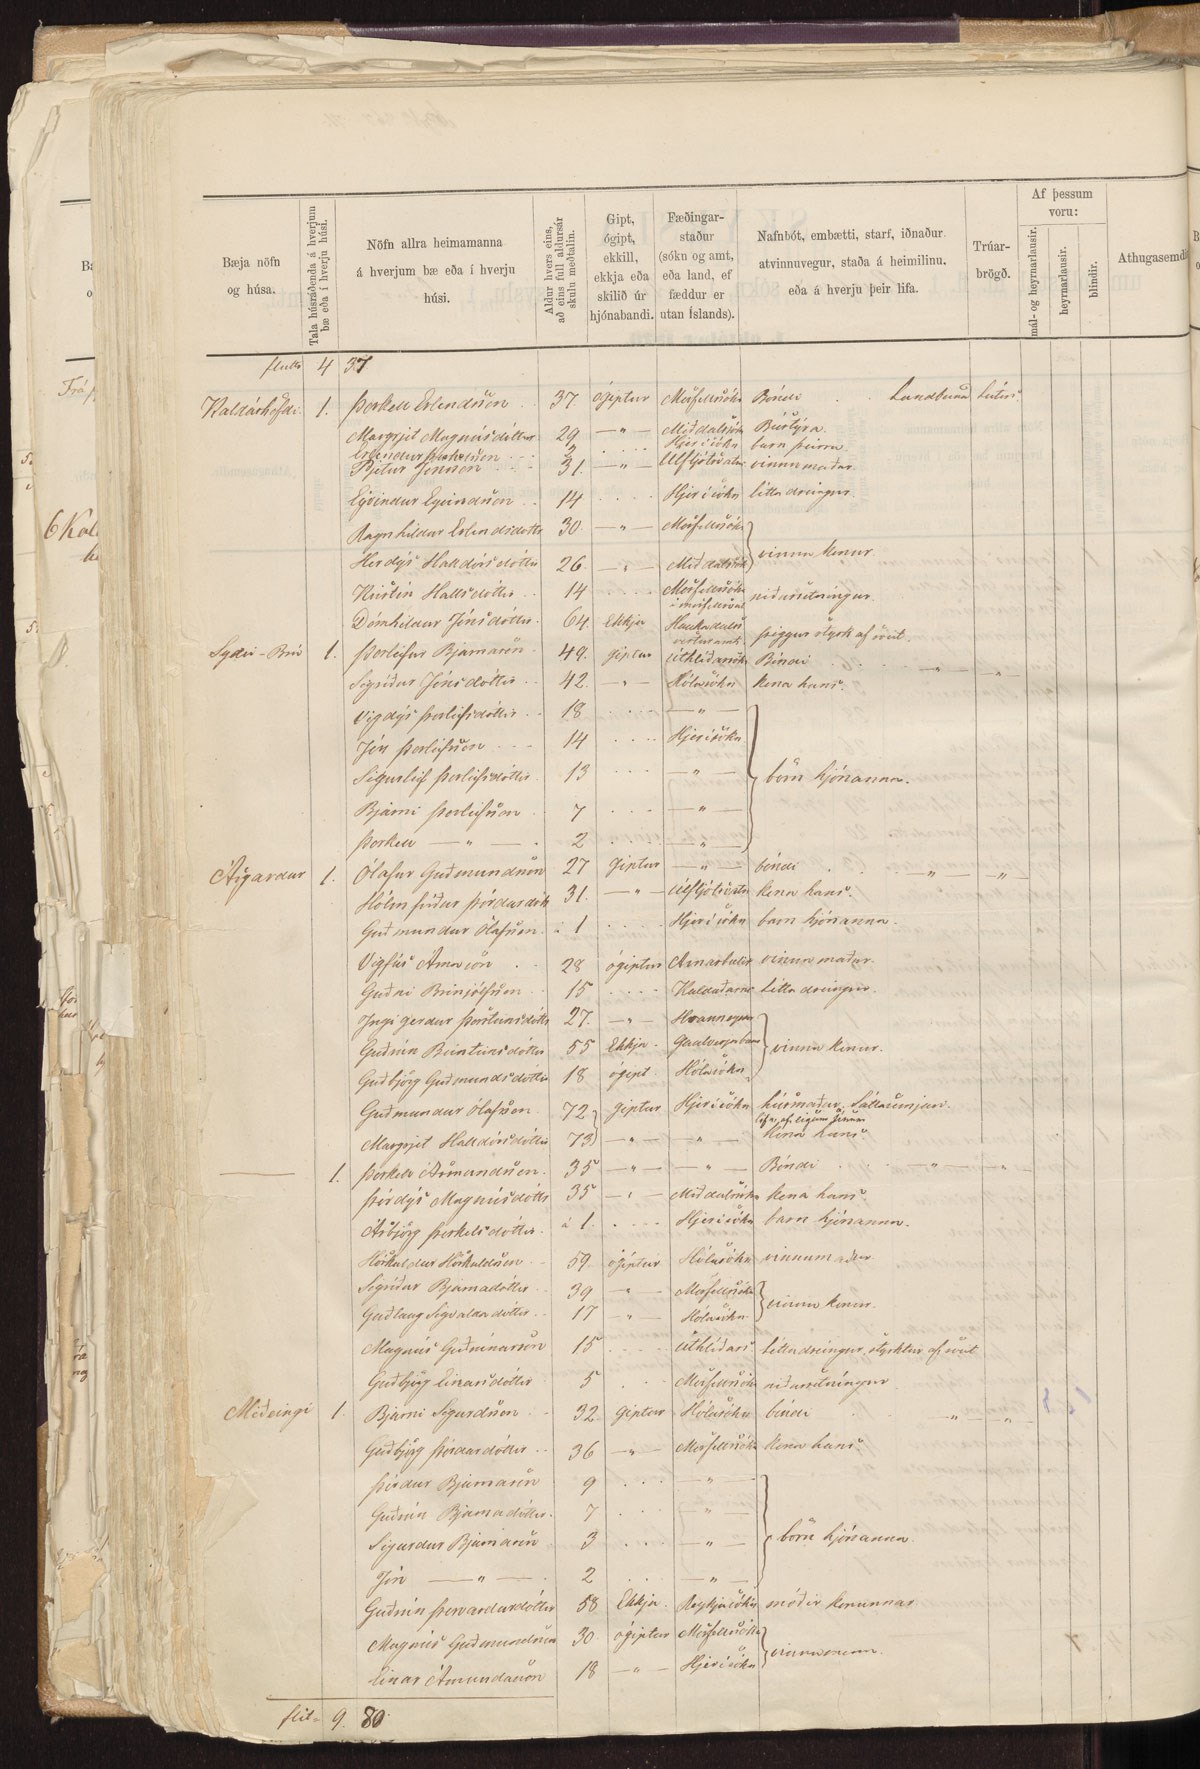 Bæja nöfn og húsa.
Tala húsráðenda á hverjum bæ eða í hverju húsi.
Nöfn allra heimamanna á hverjum bæ eða í hverju húsi.
Aldur hvers eins, að eins full aldursár skulu meðtalin.
Gipt, ógipt, ekkill, ekkja eða skilið úr hjónabandi.
Fæðingarstaður (sókn og amt, eða land, ef fæddur er utan Íslands).
Nafnbót, embætti, starf, iðnaður atvinnuvegur, staða á heimilinu. eða á hverju þeir lifa.
Trúarbrögð.
Af þessum voru:
mál- og heyrnarlausir.
heyrnarlausir.
blindir.
Athugasemd
flutt 4 37
Kaldárhöfði 1. Þorkell Erlendsson 37 ógiptur Mosfellssókn Bóndi Landbúnað Lúters
Margrjet Magnúsdóttir 29 — „ — Miðdalssók Bústýra
Erlendur Þorkelsson 2 Hjer í sókn barn þeirra
Pjetur Jónsson 31 — „ — Úlfljótsvatn vinnumaður
Eyvindur Eyvindsson 14 Hjer í sókn léttadreingur
Ragnhildur Erlendsdóttir 30 — „ — Mosfellssók
Herdýs Halldórsdóttir 26 — „ — Miðdalssók vinnukonur
Kristín Hallsdóttir 14 Mosfellssókn í mosfellssveit niðursetningur
Dómhildur Jónsdóttir 64 Ekkja Haukadals vesturamt þiggur styrk af sveit
Syðri-Brú 1. Þorleifur Bjarnason 49 giptur Úthlíðarsókn Bóndi „ „
Sigríður Jónsdóttir 42 — „ — Hólasókn kona hans
Vigdýs Þorleifsdóttir 18 — „ —
Jón Þorleifsson 14 Hjer í sókn
Sigurleif Þorleifsdóttir 13 — „ — börn hjónanna.
Bjarni Þorleifsson 7 — „ —
Þorkell — „ — 2 — „ —
Ásgarður 1. Ólafur Guðmundsson 27 giptur — „ — bóndi „ „
Hólmfríður Þórðardótt 31 — „ — Úlfljótsvatn kona hans
Guðmundur Ólafsson á 1 Hjer í sókn barn hjónanna
Vigfús Árnason 28 ógiptur Arnarbælis vinnumaður
Guðni Brinjólfsson 15 Kaldaðarnes léttadreingur
Ingigerður Þorsteinsdóttir 27 — „ — Hraungerði
Guðrún Beinteinsdóttir 55 Ekkja Gaulverjabæ vinnukonur
Guðbjörg Guðmundsdóttir 18 ógipt Hólasókn
Guðmundur Ólafsson 72 giptur Hjer í sókn húsmaður, Sáttasemjari lifir af eigum sínum
Margrjet Halldórsdóttir 73 — „ — — „ — kona hans
1. Þorkell Ásmundsson 35 — „ — — „ — Bóndi — „ — — „ —
Þórdýs Magnúsdóttir 35 — „ — Miðdalssókn kona hans
Ásbjörg Þorkelsdóttir á 1 Hjer í sókn barn hjónanna
Höskuldur Höskuldsson 59 ógiptur Hólasókn vinnumaður
Sigríður Bjarnadóttir 39 — „ — Mosfellssók
Guðlaug Sigvaldadóttir 17 — „ — Hólasókn vinnukonur
Magnús Guðmundsson 15 Úthlíðars léttadreingur, styrktur af sveit
Guðbjörg Einarsdóttir 5 Mosfellssókn niðursetningur
Miðeingi 1. Bjarni Sigurðsson 32 giptur Hólasókn bóndi „ — „ —
Guðbjörg Þórðardóttir 36 — „ — Mosfellssók kona hans
Þórður Bjarnason 9 — „ —
Guðrún Bjarnadóttir 7 — „ —
Sigurður Bjarnason 3 — „ — börn hjónanna
Jón — „ — 2 — „ —
Guðrún Þorvarðardóttir 58 Ekkja Reykjasókn móðir konunnar
Magnús Guðmundsson 30 ógiptur Mosfellssókn
Einar Ámundason 18 — „ — Hjer í sókn vinnumenn
flit 9. 80